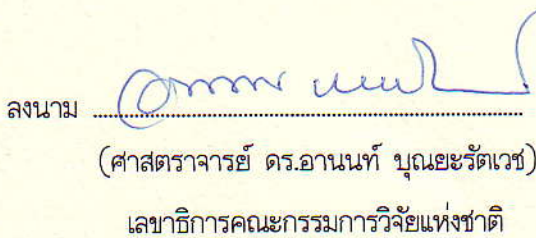 ลงนาม
(ศาสตราจารย์ ดร.อานนท์ บุณยะรัตเวช)
เลขาธิการคณะกรรมการวิจัยแห่งชาติ